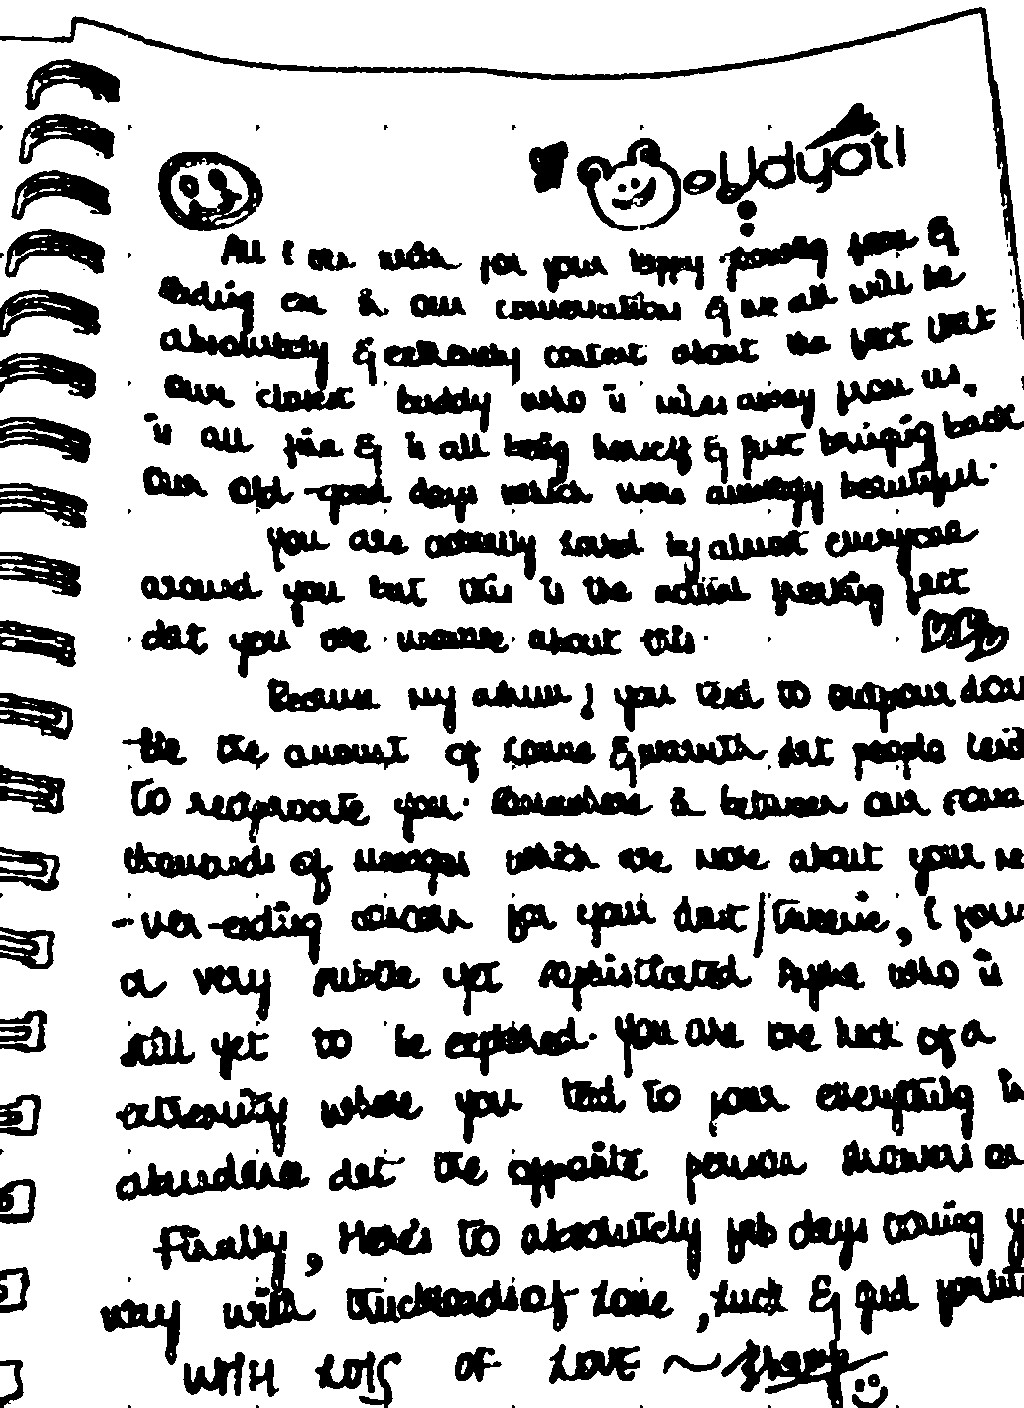 Udyati
All I can wish for your happy face &
ending on in our conversations & we all will be
absolutely & extremely content about the fact that
our closest buddy who is miles away from us,
is all fine & is all being herself & just bringing back
our old-good days which were amazingly beautiful.
you are actually loved by almost everyone
around you but this is the actual freaking fact
dat you are unaware about this.
Because my ! you tend to outpour dou
-ble the amount of love & warmth dat people tend
to reciprocate you. Somewhere in between our
thousands of messages which are more about your ne
-ver-ending concern for your, I
a very subtle yet sophisticated who is
still yet to be explored. you are the luck of a
extremity where you tend to pour everything in
abundance dat the opposite person
Finally, Here's to absolutely fab days coming y
way with truckloads of love, luck & gud
WITH LOTS OF LOVE ~